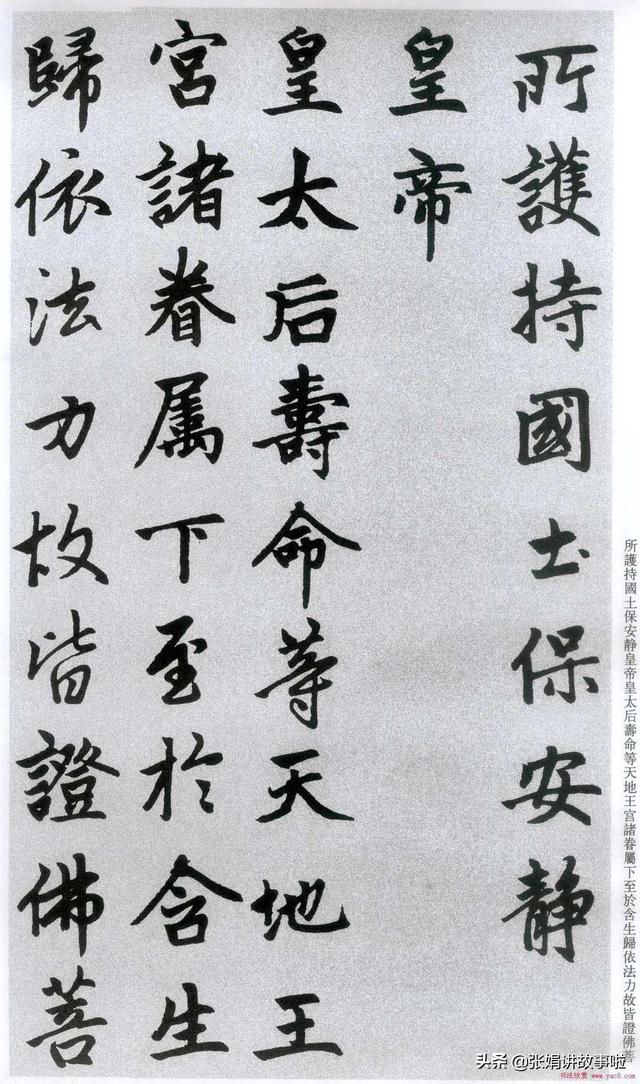 所護持國土保安静
皇帝
皇太后壽命等天地王
宮諸眷属下至於含生
歸依法力故皆證佛菩
所護持國土保安静皇帝皇太后壽命等天地王宫諸眷屬下至於含生歸依法力故皆證佛菩
头条 @张娟讲故事啦
书法欣赏 www.yac8.com